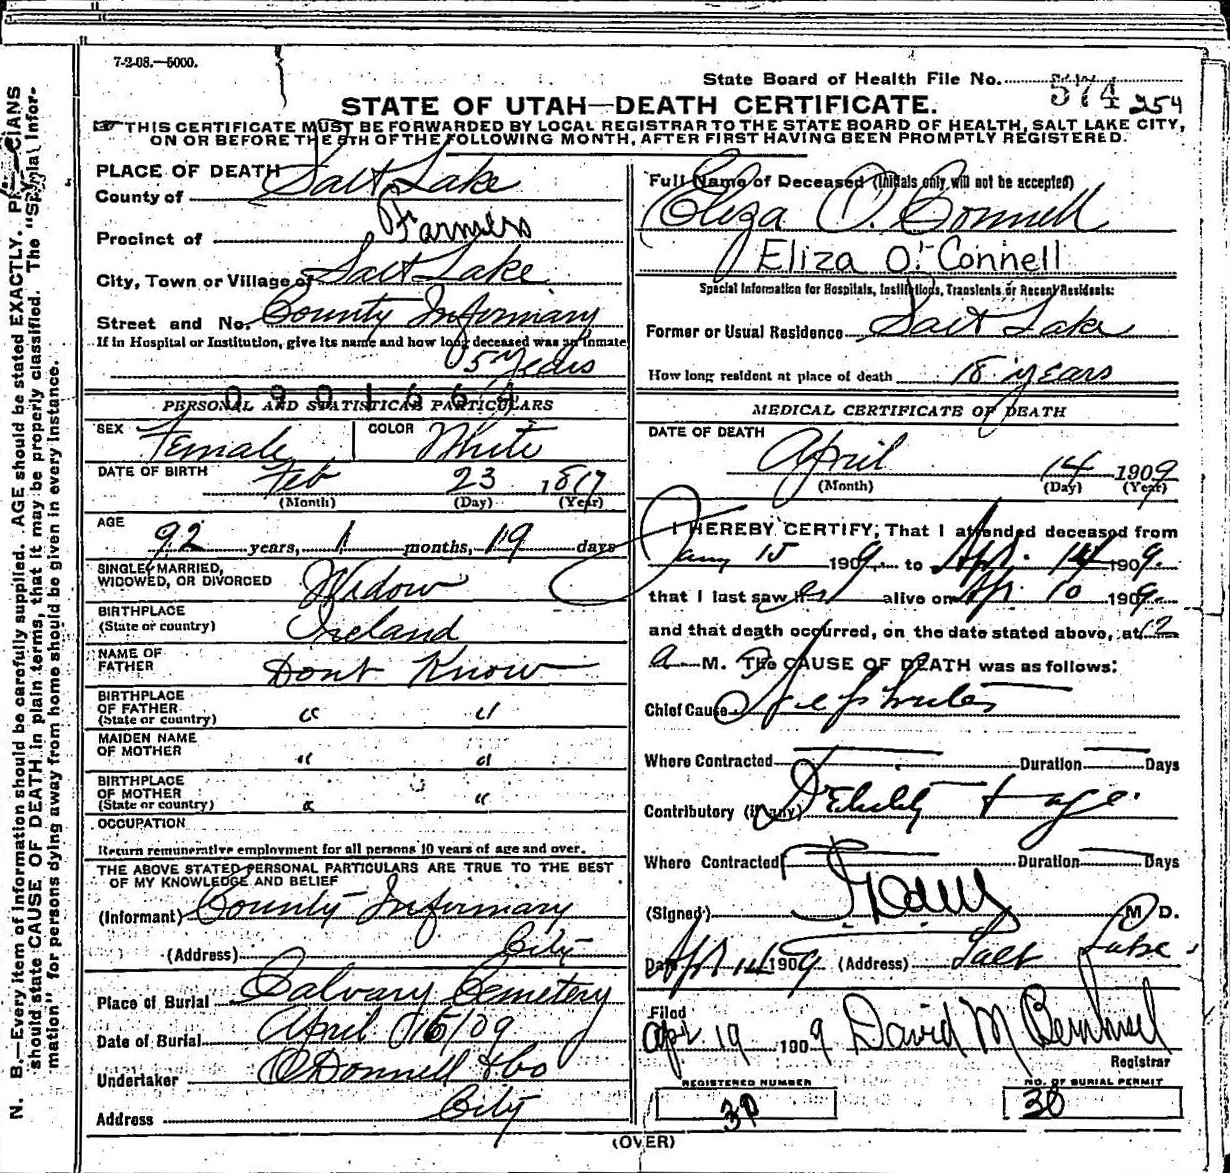 7-2-08.—5000.
State Board of Health File No. 574 254
STATE OF UTAH—DEATH CERTIFICATE.
THIS CERTIFICATE MUST BE FORWARDED BY LOCAL REGISTRAR TO THE STATE BOARD OF HEALTH, SALT LAKE CITY,
ON OR BEFORE THE 5TH OF THE FOLLOWING MONTH, AFTER FIRST HAVING BEEN PROMPTLY REGISTERED.
PLACE OF DEATH
County of Salt Lake
Precinct of Farmers
City, Town or Village of Salt Lake
Street and No. County Infirmary
If in Hospital or Institution, give its name and how long deceased was an inmate
5 Years
0901664
PERSONAL AND STATISTICAL PARTICULARS
SEX Female COLOR White
DATE OF BIRTH Feb 23 1817
(Month) (Day) (Year)
AGE
92 years, 1 months, 19 days
SINGLE, MARRIED,
WIDOWED, OR DIVORCED Widow
BIRTHPLACE
(State or country) Ireland
NAME OF
FATHER Dont Know
BIRTHPLACE
OF FATHER
(State or country) " "
MAIDEN NAME
OF MOTHER " "
BIRTHPLACE
OF MOTHER
(State or country) " "
OCCUPATION
Return remunerative employment for all persons 10 years of age and over.
THE ABOVE STATED PERSONAL PARTICULARS ARE TRUE TO THE BEST
OF MY KNOWLEDGE AND BELIEF
(Informant) County Infirmary
(Address) City
Place of Burial Calvary Cemetery
Date of Burial April 16/09
Undertaker O'Donnell & Co
Address City
Full Name of Deceased (Initials only will not be accepted)
Eliza O. Connell
Eliza O'Connell
Special Information for Hospitals, Institutions, Transients or Recent Residents:
Former or Usual Residence Salt Lake
How long resident at place of death 18 years
MEDICAL CERTIFICATE OF DEATH
DATE OF DEATH
April 14 1909
(Month) (Day) (Year)
I HEREBY CERTIFY, That I attended deceased from
Jany 15 1909 to Apr. 14 1909.
that I last saw her alive on Apr 10 1909
and that death occurred, on the date stated above, at 12
a M. The CAUSE OF DEATH was as follows:
Chief Cause Nephritis
Where Contracted Duration Days
Contributory (if any) Debility + age.
Where Contracted Duration Days
(Signed) M. D.
Date Apr 14 1909 (Address) Salt Lake
Filed
Apr 19 1909 David M
Registrar
REGISTERED NUMBER
30
NO. OF BURIAL PERMIT
30
(OVER)
N. B.—Every item of information should be carefully supplied. AGE should be stated EXACTLY. PHYSICIANS
should state CAUSE OF DEATH in plain terms, that it may be properly classified. The "Special Infor-
mation" for persons dying away from home should be given in every instance.